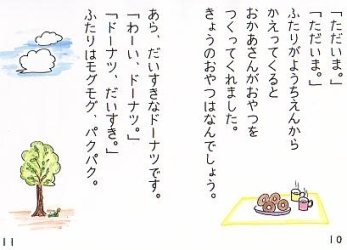 「ただいま。」
「ただいま。」
ふたりがようちえんから
かえってくると
おかあさんがおやつを
つくってくれました。
きょうのおやつはなんでしょう。
10
あら、だいすきなドーナツです。
「わーい、ドーナツ。」
「ドーナツ、だいすき。」
ふたりはモグモグ、パクパク。
11